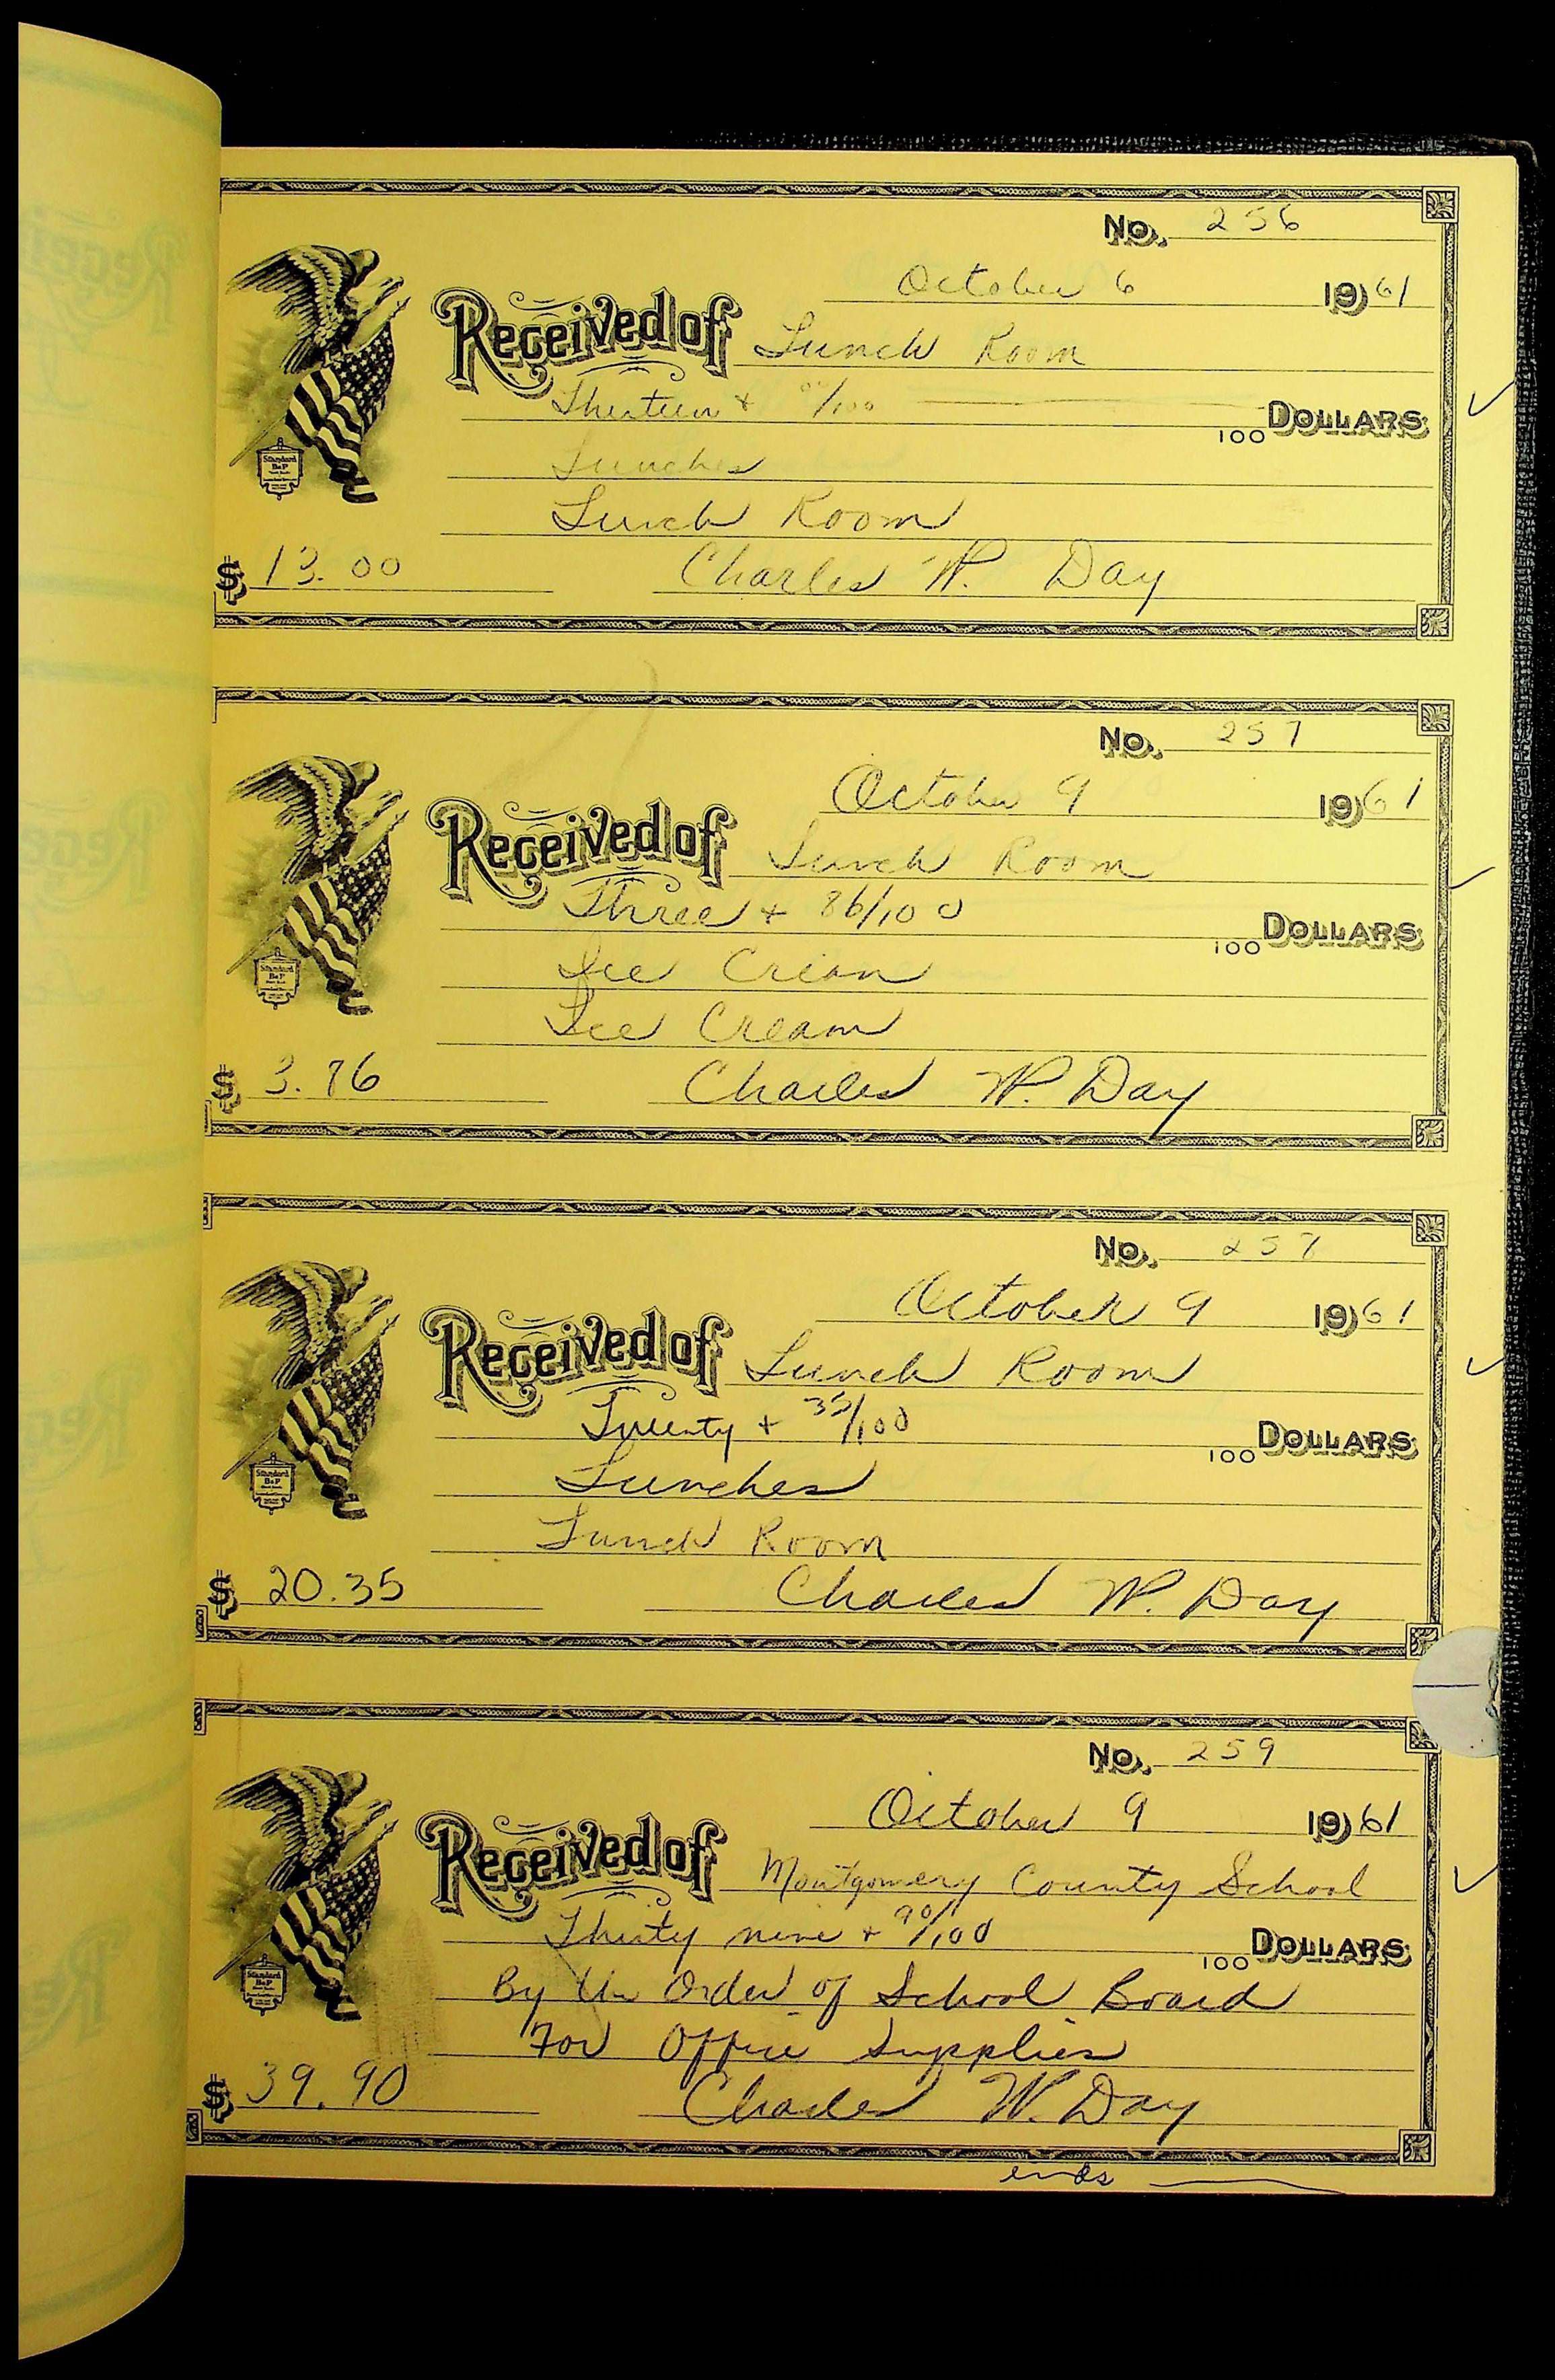 No. 256
October 6 1961
Received of Lunch Room
Thirteen + 00/100 100 DOLLARS
Lunches
Lunch Room
$ 13.00 Charles W. Day
No. 257
October 9 1961
Received of Lunch Room
Three + 86/100 100 DOLLARS
Ice Cream
Ice Cream
$ 3.76 Charles W. Day
No. 257
October 9 1961
Received of Lunch Room
Twenty + 35/100 100 DOLLARS
Lunches
Lunch Room
$ 20.35 Charles W. Day
No. 259
October 9 1961
Received of Montgomery County School
Thirty nine + 90/100 100 DOLLARS
By the Order of School Board
For Office Supplies
$ 39.90 Charles W. Day
ends